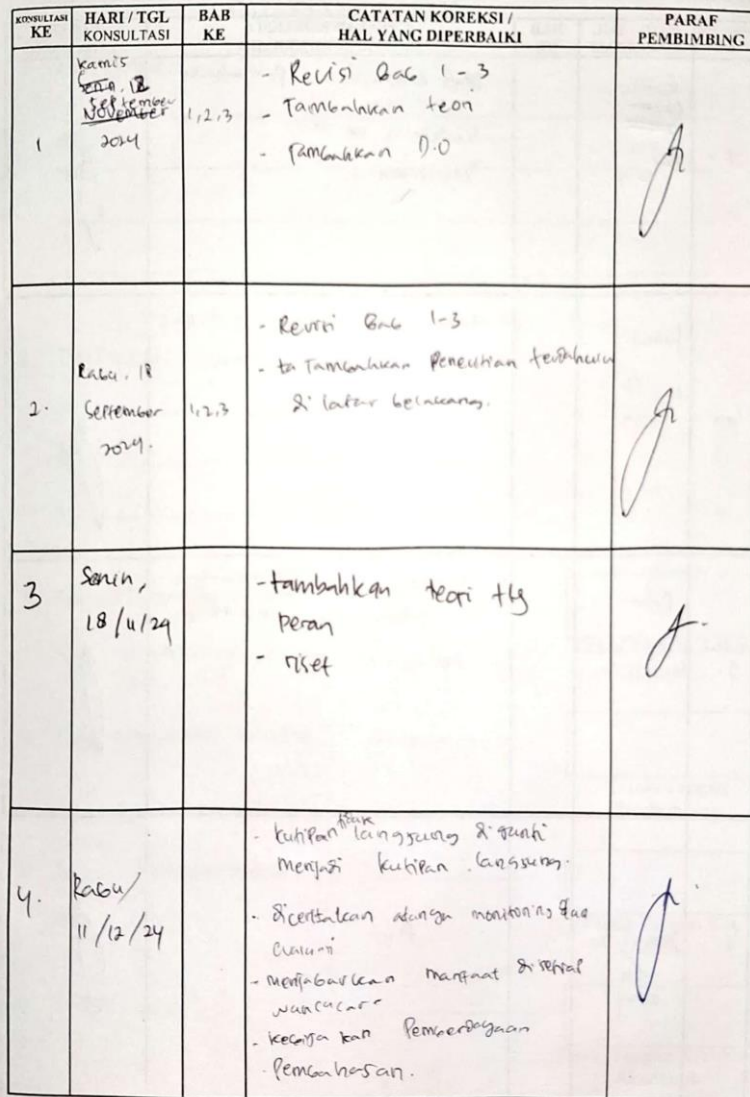 KONSULTASI KE
HARI / TGL KONSULTASI
BAB KE
CATATAN KOREKSI / HAL YANG DIPERBAIKI
PARAF PEMBIMBING
1
Kamis
Senin, 12
September
November
2024
1,2,3
- Revisi Bab 1-3
- Tambahkan teori
- Tambahkan D.O
2.
Rabu, 18
September
2024.
1,2,3
- Revisi Bab 1-3
- ta Tambahkan Penelitian terdahulu
di latar belakang.
3
Senin,
18/11/24
- tambahkan teori ttg
peran
- riset
4.
Rabu/
11/12/24
- kutipan tidak langsung diganti
menjadi kutipan langsung.
- diceritakan adanya monitoring dan
evaluasi
- menjabarkan manfaat di setiap
wawancara
- kebijakan Pemberdayaan
- Pembahasan.